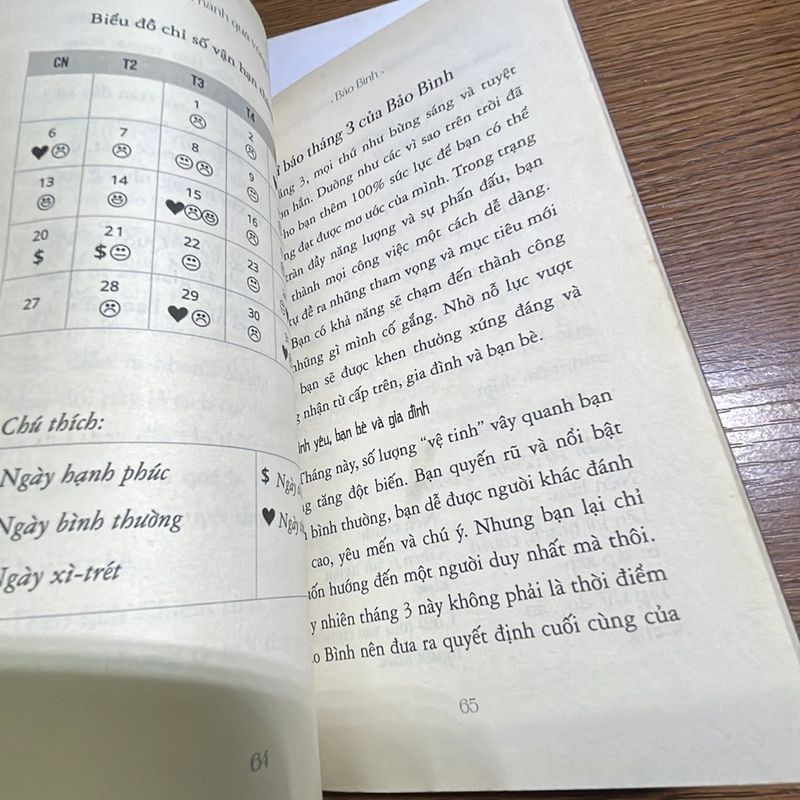 hành quả
Biểu đồ chỉ số vận hạn
CN T2 T3 T4
1 2
6 7 8 9
13 14 15 16
20 21 22 23
$ $
27 28 29 30
Chú thích:
Ngày hạnh phúc $ Ngày
Ngày bình thường ♥ Ngày
Ngày xì-trét
64
· Bảo Bình ·
báo tháng 3 của Bảo Bình
3, mọi thứ như bừng sáng và tuyệt
hẳn. Dường như các vì sao trên trời đã
bạn thêm 100% sức lực để bạn có thể
đạt được mơ ước của mình. Trong trạng
tràn đầy năng lượng và sự phấn đấu, bạn
thành mọi công việc một cách dễ dàng.
tự đề ra những tham vọng và mục tiêu mới
Bạn có khả năng sẽ chạm đến thành công
những gì mình cố gắng. Nhờ nỗ lực vượt
bạn sẽ được khen thưởng xứng đáng và
nhận từ cấp trên, gia đình và bạn bè.
yêu, bạn bè và gia đình
Tháng này, số lượng “vệ tinh” vây quanh bạn
tăng đột biến. Bạn quyến rũ và nổi bật
bình thường, bạn dễ được người khác đánh
cao, yêu mến và chú ý. Nhưng bạn lại chỉ
hướng đến một người duy nhất mà thôi.
nhiên tháng 3 này không phải là thời điểm
Bình nên đưa ra quyết định cuối cùng của
65